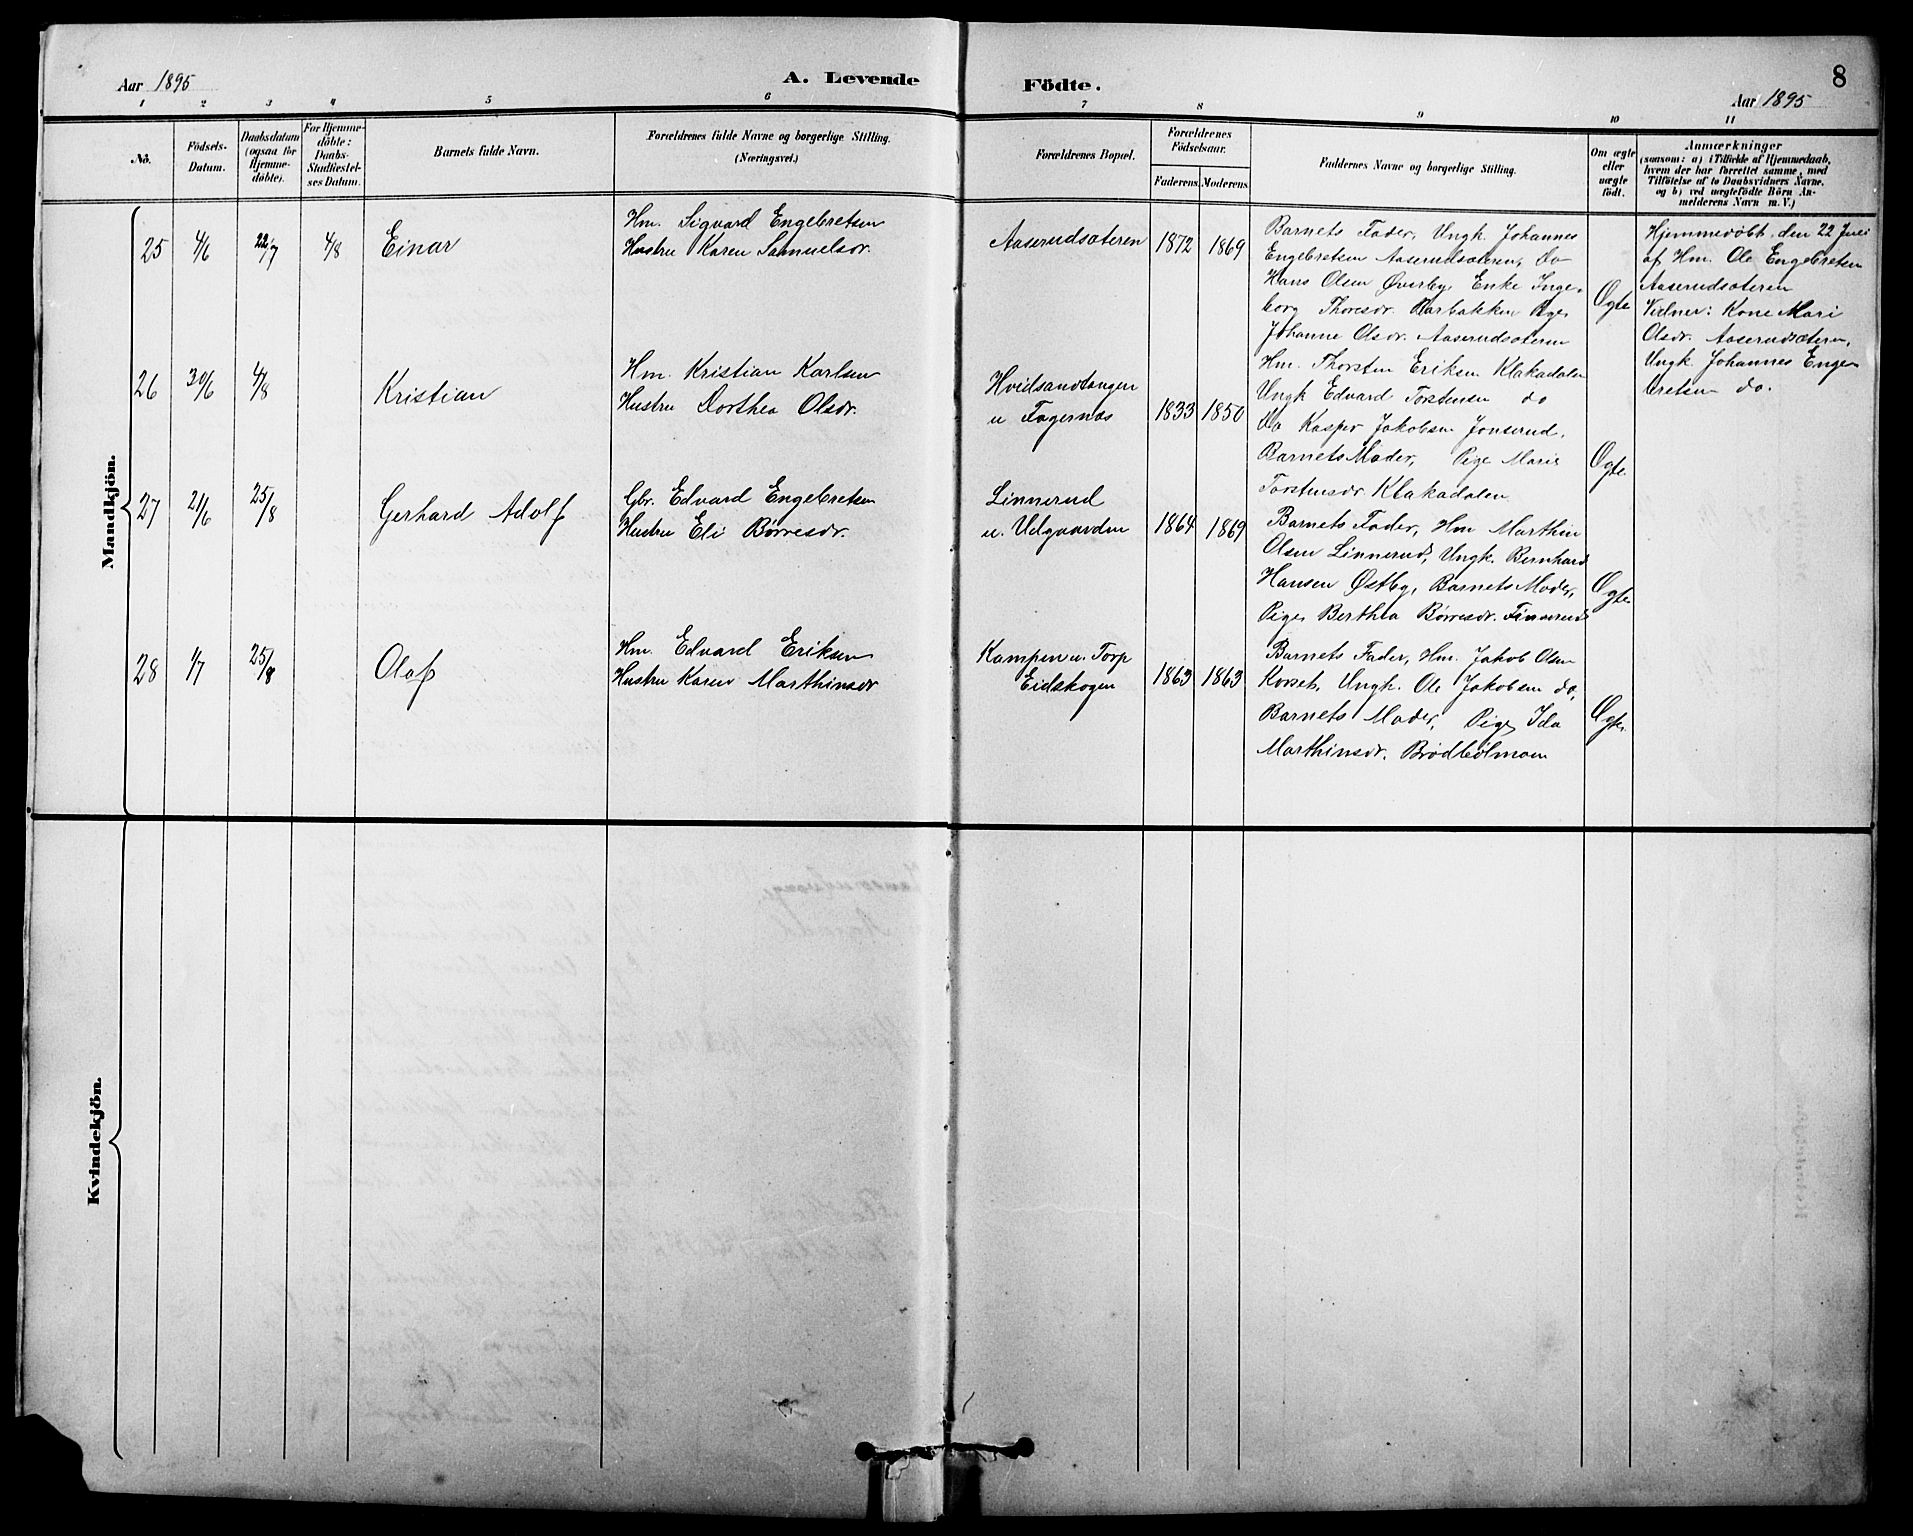 Aar 1895
A. Levende
Födte.
8
Aar 1895
1 2 3 4 5 6 7 8 9 10 11
No.
Födsels-
Datum.
Daabsdatum
(ogsaa for
Hjemme-
döbte).
For Hjemme-
döbte:
Daabs-
Stadfæstel-
ses Datum.
Barnets fulde Navn.
Forældrenes fulde Navne og borgerlige Stilling.
(Næringsvei.)
Forældrenes Bopæl.
Forældrenes
Födselsaar.
Faderens. Moderens.
Faddernes Navne og borgerlige Stilling.
Om ægte
eller
uægte
födt.
Anmærkninger
(saasom: a) i Tilfælde af Hjemmedaab,
hvem der har forrettet samme, med
Tilföielse af to Daabsvidners Navne.
og b) ved uægtefödte Börn An-
melderens Navn m. V.)
Mandkjön.
25 4/6 22/7 4/8 Einar
Hm. Sigvard Engebretsen
Hustru Karen Samuelsdr.
Aaserudsæteren 1872 1869
Barnets Fader, Ungk. Johannes
Engebretsen Aaserudsæteren, do
Hans Olsen Øverby, Enke Inge-
borg Thoresdr. Pige
Johanne Olsdr. Aaserudsæteren
Ægte
Hjemmedøbt den 22 Juli
af Hm. Ole Engebretsen
Aaserudsæteren
Vidner: Kone Mari
Olsdr. Aaserudsæteren,
Ungk. Johannes Enge-
bretsen do.
26 30/6 4/8 Kristian
Hm. Kristian Karlsen
Hustru Dorthea Olsdr.
Hvidsandtangen
u Fagernæs
1833 1850
Hm. Thorsten Eriksen Klakadalen
Ungk Edvard Torstensen do
Do Kasper Jakobsen Jonserud.
Barnets Moder, Pige Marie
Torstensdr Klakadalen
Ægte
27 21/6 25/8 Gerhard Adolf
Gbr. Edvard Engebretsen
Hustru Eli Børresdr.
Linnerud
u. Udgaarden
1864 1869
Barnets Fader, Hm Marthin
Olsen Linnerud, Ungk. Bernhard
Hansen Østby, Barnets Moder,
Pige Berthea Børresdr. Finnerud
Ægte
28 1/7 25/8 Olaf
Hm. Edvard Eriksen
Hustru Karen Marthinsdr
Kampen u. Torp
Eidskogen
1863 1863
Barnets Fader, Hm. Jakob Olsen
Korset, Ungk. Ole Jakobsen do,
Barnets Moder, Pige Ida
Marthinsdr. Brødbølmoen
Ægte.
Kvindekjön.